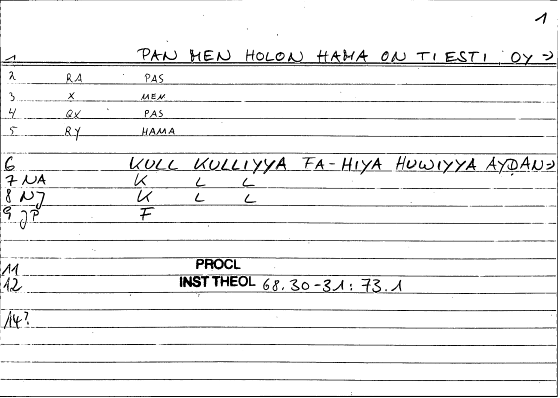 1
1 PAN MEN HOLON HAMA ON TI ESTI OY →
2 RA PAS
3 X MEN
4 QX PAS
5 RY HAMA
6 KULL KULLIYYA FA-HIYA HUWIYYA AYḌAN→
7 NA K L L
8 NJ K L L
9 JP F
11 PROCL
12 INST THEOL 68.30-31: 73.1
14?